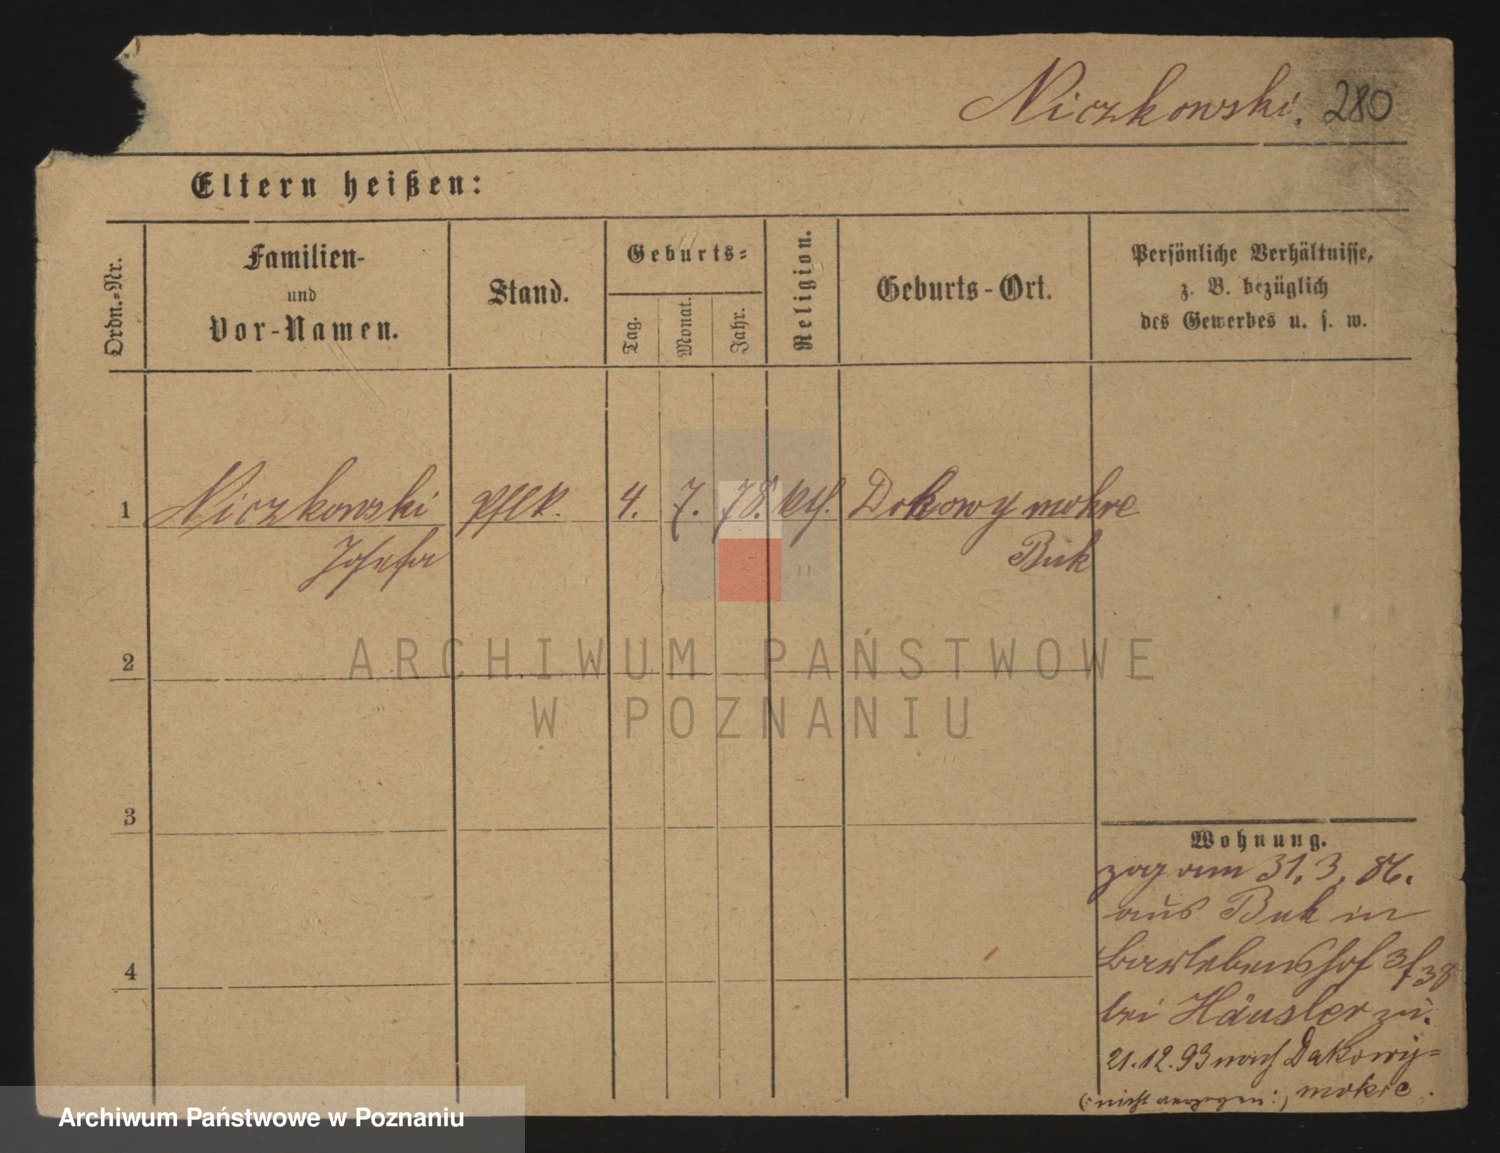 Niczkowski. 280
Eltern heißen:
Ordn.-Nr.
Familien-
und
Vor-Namen.
Stand.
Geburts-
Tag.
Monat.
Jahr.
Religion.
Geburts-Ort.
Persönliche Verhältnisse,
z. B. bezüglich
des Gewerbes u. s. w.
1 Niczkowski 4. 7. 78. kth. Dokowy mokre
Josefa Buk
2
3
4
Wohnung.
zog am 31. 3. 86.
aus Buk in
Barlebenshof 3/38
bei Häusler zu.
21.12.93 nach Dakowy=
mokre.
(: nicht :)
ARCHIWUM PAŃSTWOWE
W POZNANIU
Archiwum Państwowe w Poznaniu